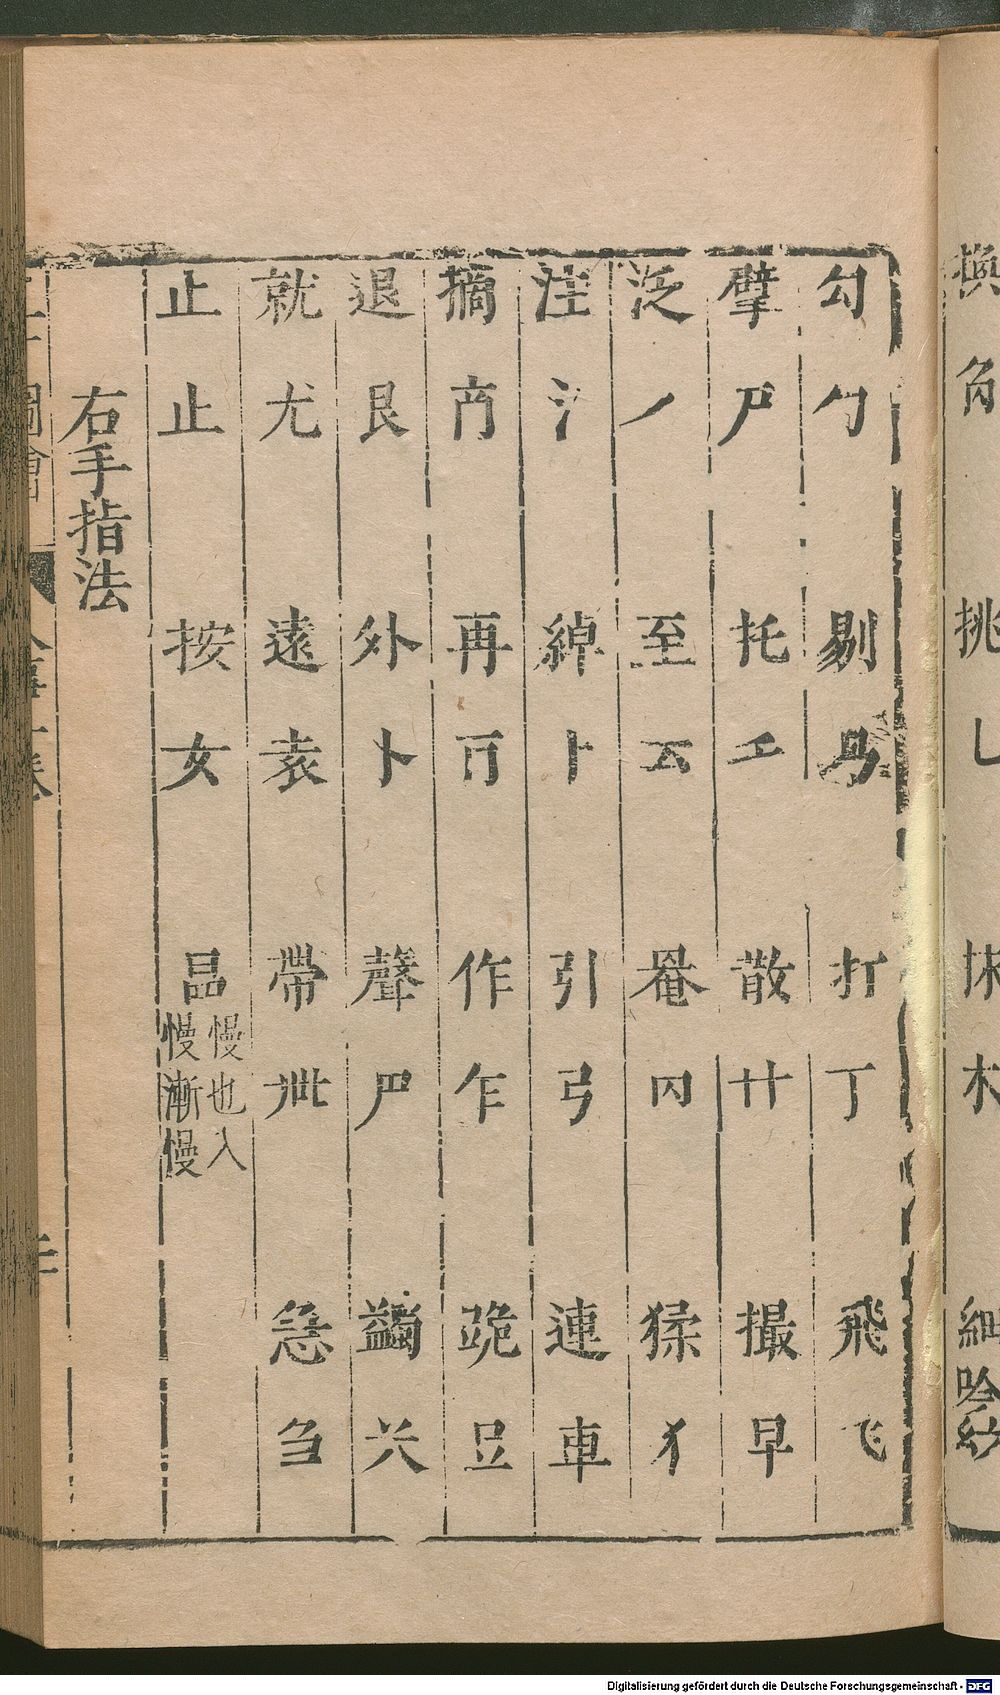 換 角 挑 乚 抹 木 細吟
勾 勹 剔 打 丁 飛 飞
擘 尸 托 乇 散 廾 撮 早
泛 丿 至 罨 猱 犭
注 氵 綽 卜 引 弓 連 車
摘 再 作 乍 跪
退 艮 外 卜 聲 尸 蠲
就 尤 遠 袁 帶 急 刍
止 止 按 女 昷 慢也入
慢漸慢
右手指法
圖會
Digitalisierung gefördert durch die Deutsche Forschungsgemeinschaft - DFG